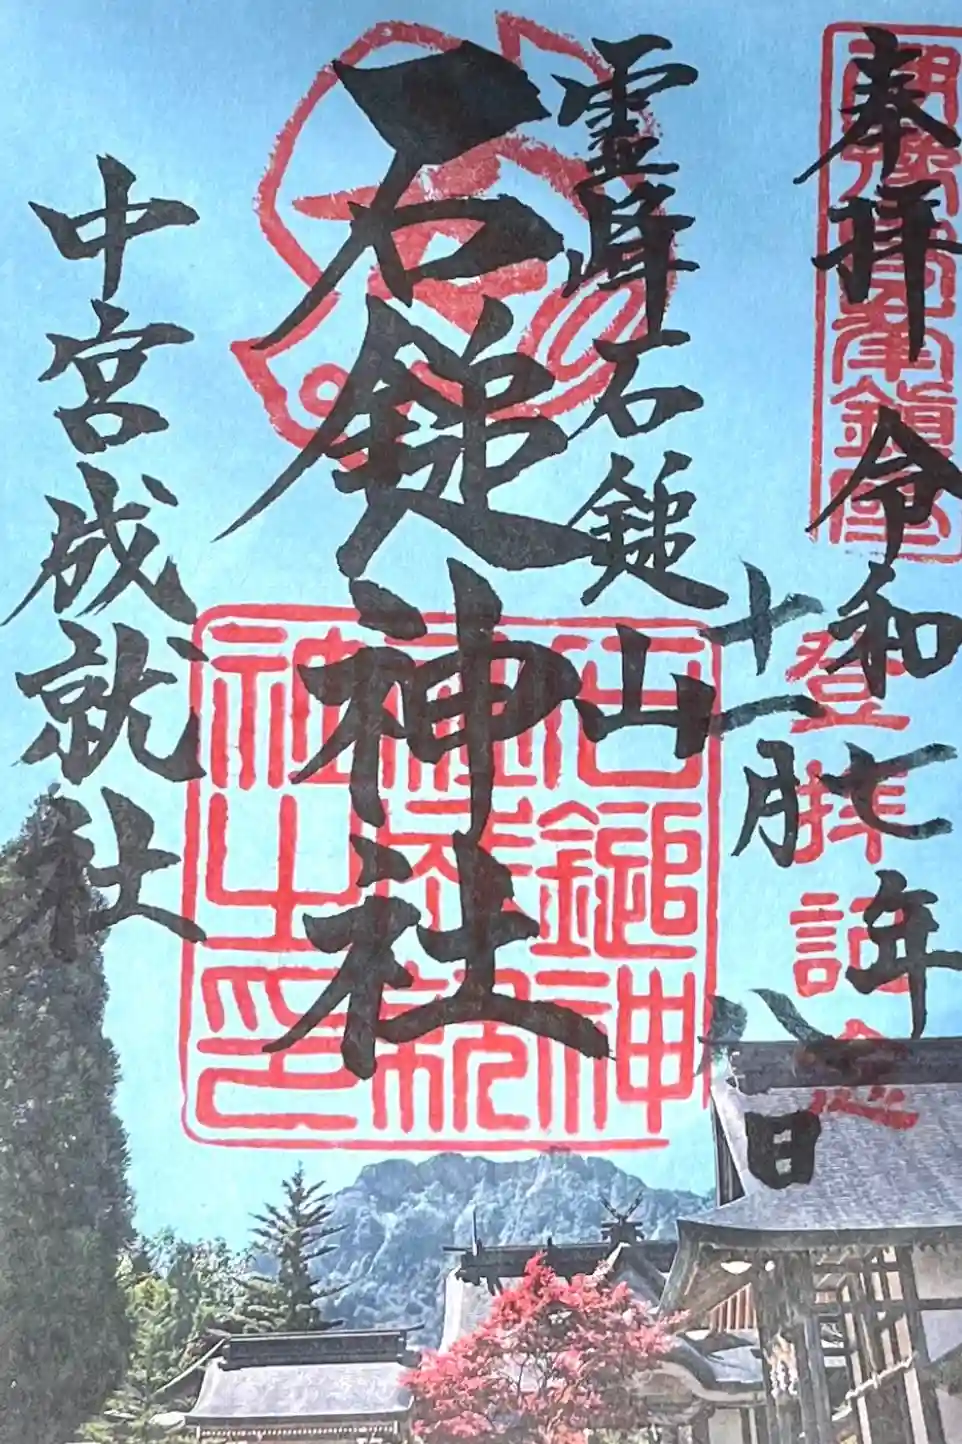 奉拝
令和七年
十一月
八日
登拝記念
霊峰石鎚山
石鎚神社
中宮成就社
石鎚神
社之印